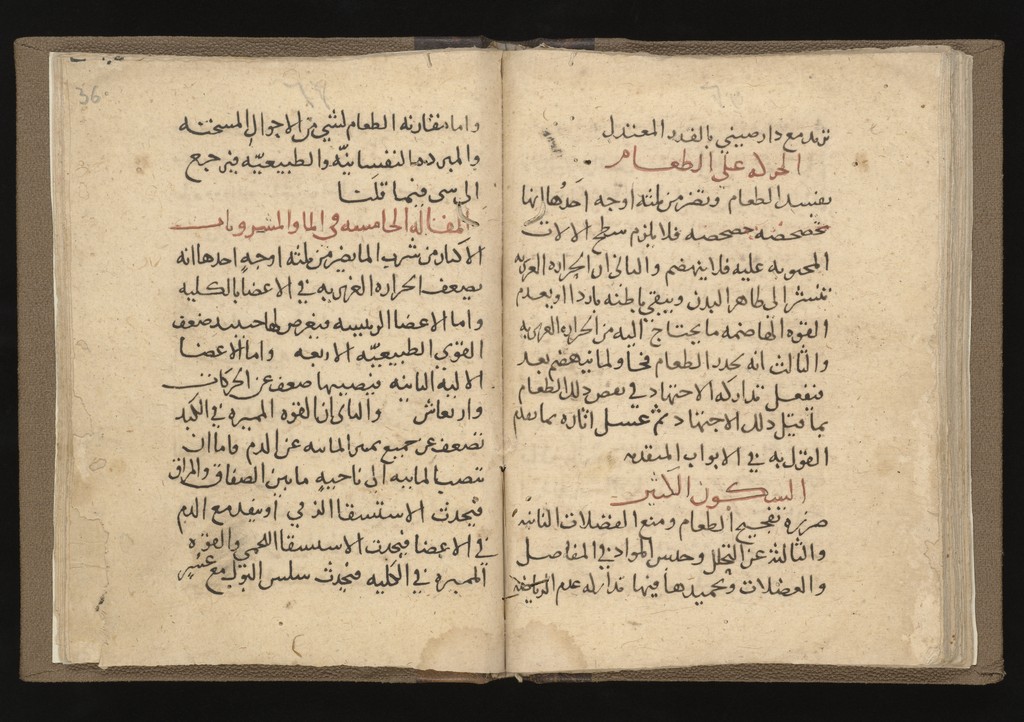 تزيد مع دارصيني بالقدر المعتدل
الحركه على الطعام
يفسد الطعام وتضر من ثلثه اوجه احدها انها
تخضخضه خضخضه فلا يلزم سطح الالات
المحتويه عليه فلا ينهضم والثاني ان الحراره الغريزيه
تنتشر الى ظاهر البدن ويبقي باطنه باردا او يعدم
القوه الهاضمه ما يحتاج اليه من الحراره الغريزيه
والثالث انه يحدر الطعام فجا ولما ينهضم بعد
فيفعل تداركه الاجتهاد في نفض ذلك الطعام
بما قيل ذلك الاجتهاد ثم غسل اثاره بما تقدم
القول به في الابواب المتقدمه
السكون الكثير
ضرره تفجيج الطعام ومنع الفضلات الثانيه
والثالثه عن التحلل وحبس المواد في المفاصل
والعضلات وتجميدها فيها تداركه عدم الرياضه
36
واما مقارنه الطعام لشي من الاحوال المسخنه
والمبرده النفسانيه والطبيعيه فيرجع
الى شي فيما قلنا
المقاله الخامسه في الما والمشروبات
الاكثار من شرب الما يضر من ثلثه اوجه احدها انه
يضعف الحراره الغريزيه في الاعضا بالكليه
واما الاعضا الرييسيه فيعرض لها حينيد ضعف
القوي الطبيعيه الاربعه واما الاعضا
الاليه الثانيه فيصيبها ضعف عن الحركات
وارتعاش والثاني ان القوه المميزه في الكبد
تضعف عن جميع تميز المائيه عن الدم فاما ان
تنصب المائيه الى ناحيه ما بين الصفاق والمراق
فيحدث الاستسقا الزقي او ينفد مع الدم
في الاعضا فيحدث الاستسقا اللحمي والقوه
المميزه في الكليه فيحدث سلس البول مع عسر